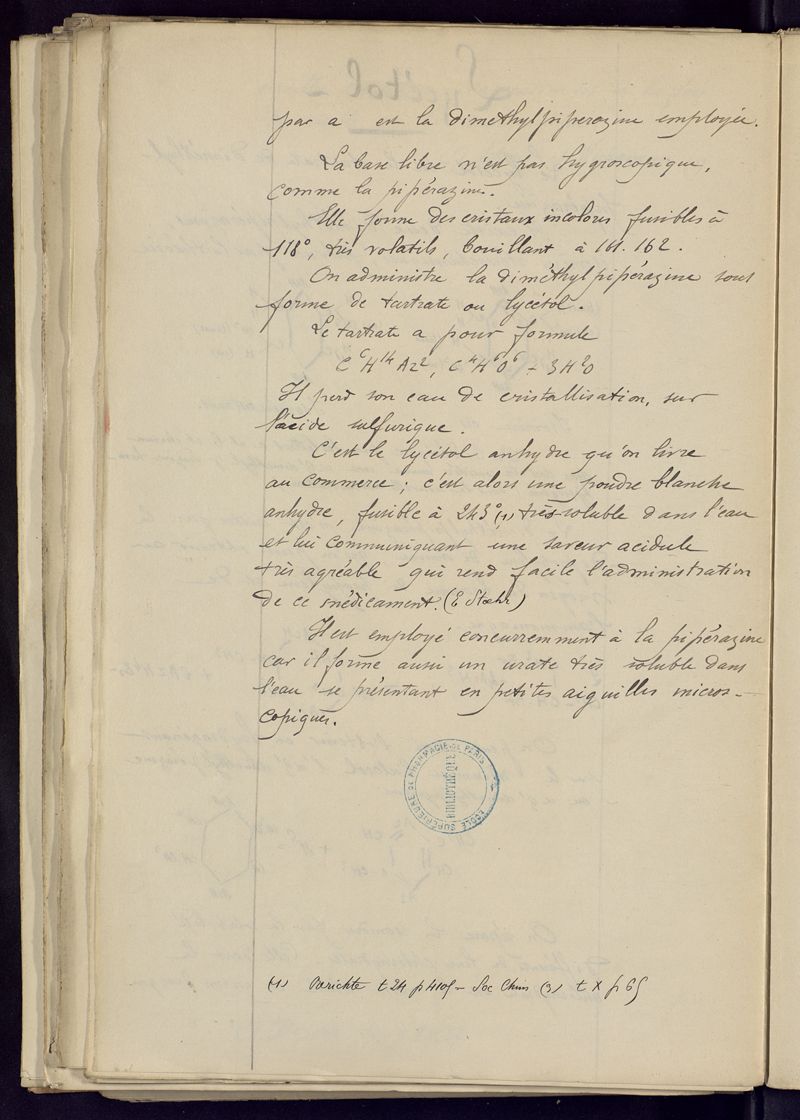 par a est la diméthylpiperazine employée.
La base libre n'est pas hygroscopique,
comme la pipérazine.
Elle forme des cristaux incolores fusibles à
118°, très volatils, bouillant à 161.162.
On administre la diméthylpipérazine sous
forme de tartrate ou lycétol.
Le tartrate a pour formule
C⁶H¹⁴Az², C⁴H⁶O⁶ + 3H²O
Il perd son eau de cristallisation, sur
l'acide sulfurique.
C'est le lycétol anhydre qu'on livre
au commerce ; c'est alors une poudre blanche
anhydre, fusible à 243° (1), très soluble dans l'eau
et lui communiquant une saveur acidule
très agréable qui rend facile l'administration
de ce médicament. (E Stoehr)
Il est employé concurremment à la pipérazine
car il forme aussi un urate très soluble dans
l'eau se présentant en petites aiguilles micros-
copiques.
ECOLE SUPÉRIEURE DE PHARMACIE DE PARIS
BIBLIOTHÈQUE
(1) Berichte t 24 p 4105 - Soc Chim (3) t X p 65